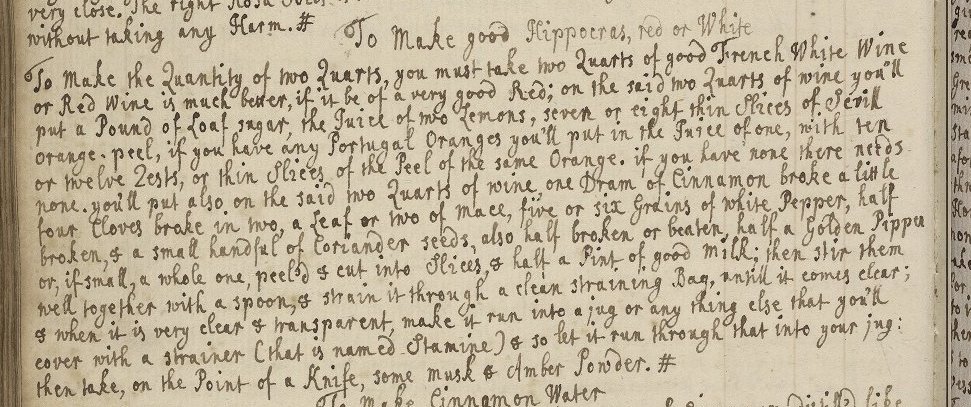 very close. The right Rosa Solis
without taking any Harm.#
To Make good Hippocras, red or White
To Make the Quantity of two Quarts, you must take two Quarts of good French White Wine
or Red Wine is much better, if it be of a very good Red; on the said two Quarts of wine you'll
put a Pound of Loaf sugar, the Juice of two Lemons, seven or eight thin Slices of Sevill
orange-peel, if you have any Portugal Oranges you'll put in the Juice of one, with ten
or twelve Zests, or thin Slices of the Peel of the same Orange. if you have none there needs
none. you'll put also on the said two Quarts of wine, one Dram of Cinnamon broke a little
four Cloves broke in two, a Leaf or two of mace, five or six Grains of white Pepper, half
broken, & a small handful of Coriander seeds, also half broken or beaten, half a Golden Pippin
or, if small, a whole one, peel'd & cut into Slices, & half a Pint of good Milk; then stir them
well together with a spoon, & strain it through a clean straining Bag, untill it comes clear;
& when it is very clear & transparent, make it run into a jug or any thing else that you'll
cover with a strainer (that is named Stamine) & so let it run through that into your jug:
then take, on the Point of a Knife, some musk & Amber Powder.#
To Make Cinnamon Water
like